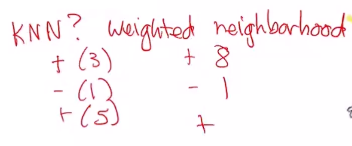 KNN? weighted neighborhood
+ (3) + 8
- (1) - 1
+ (5) +